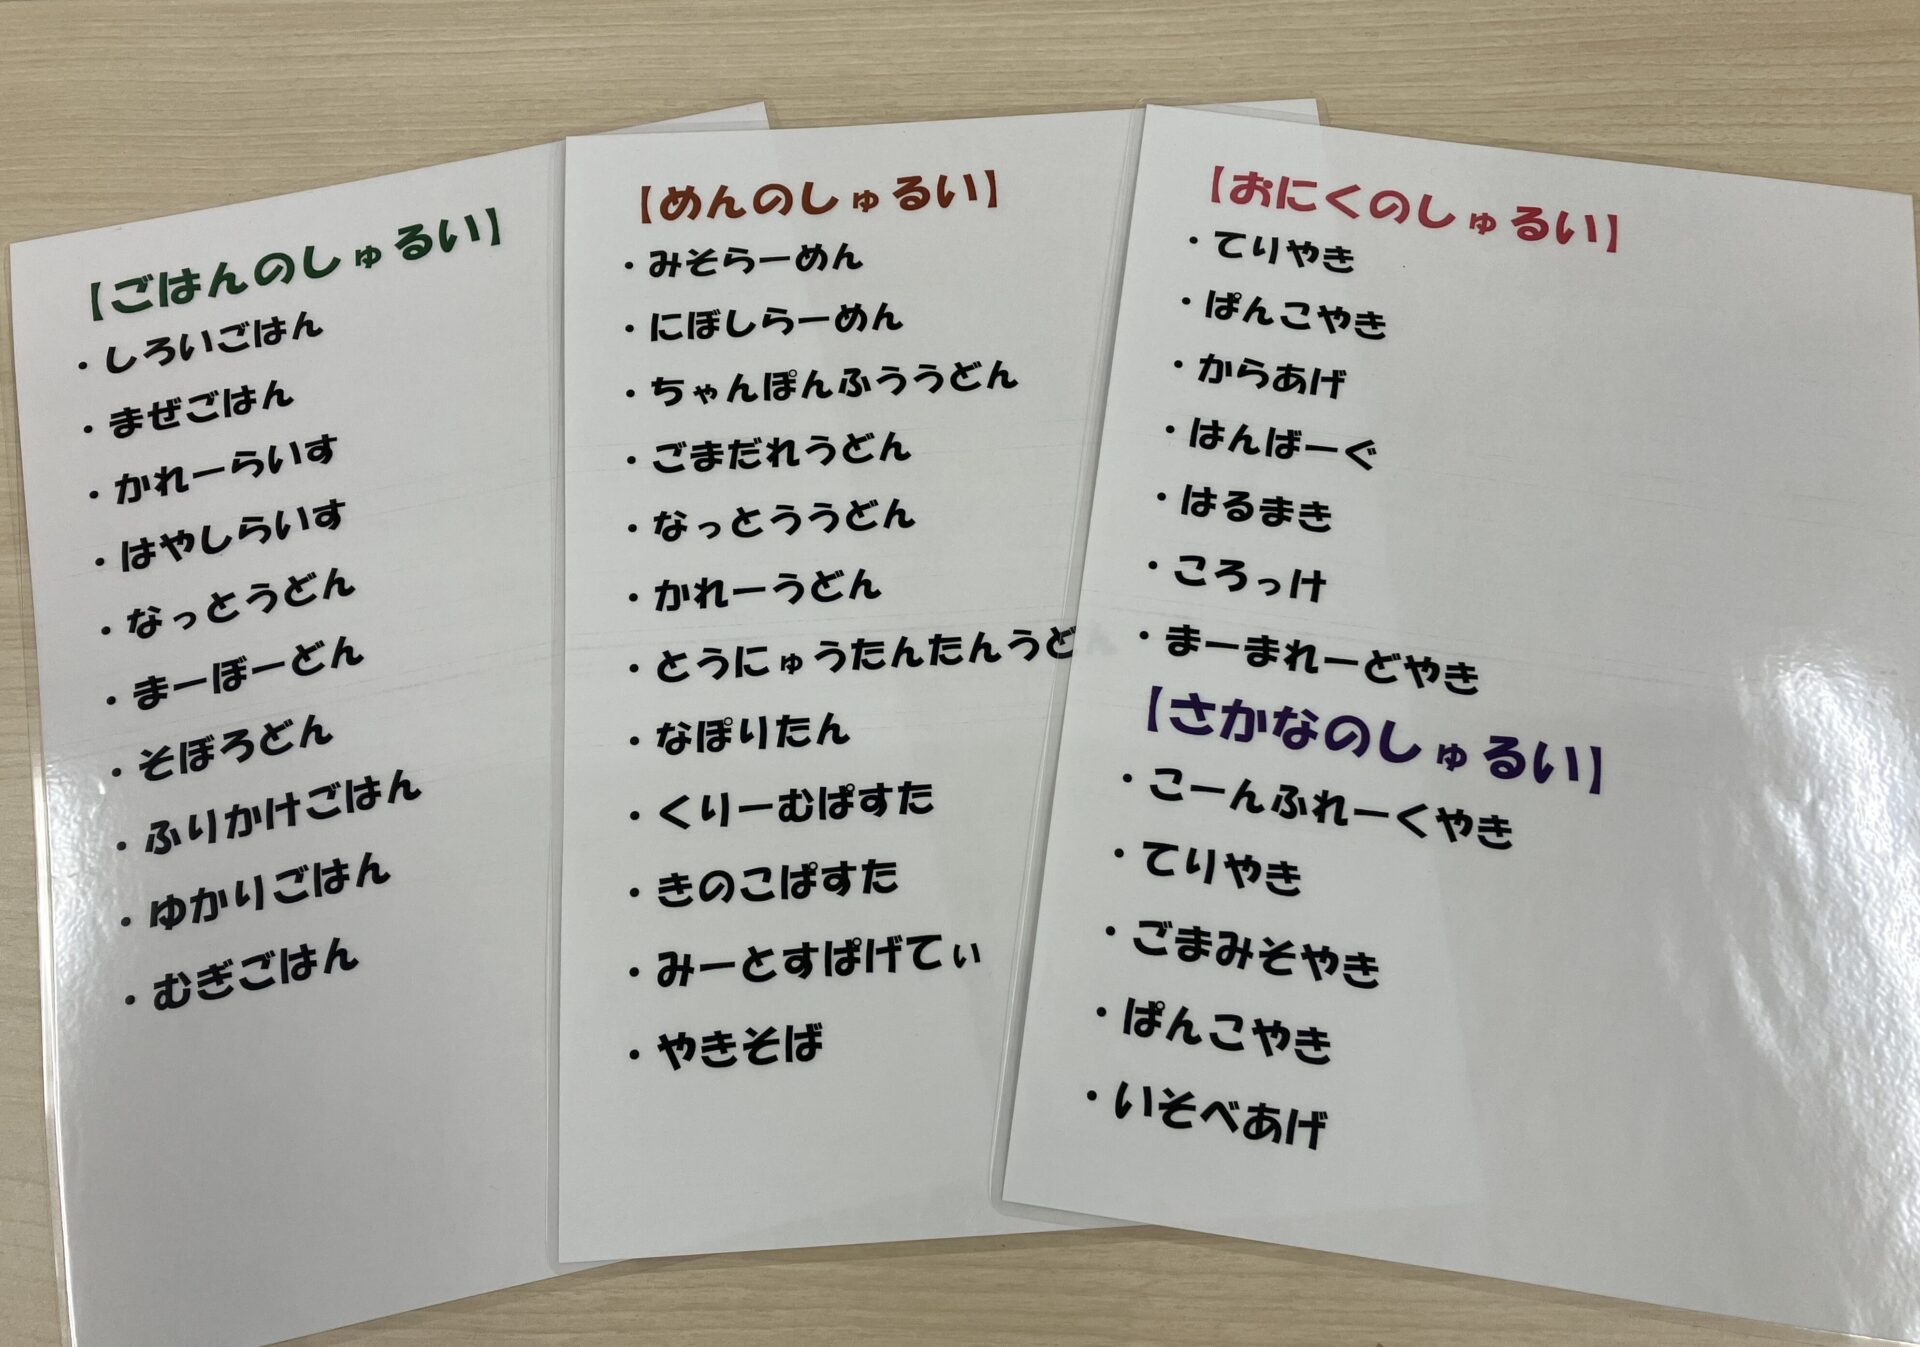 【ごはんのしゅるい】
・しろいごはん
・まぜごはん
・かれーらいす
・はやしらいす
・なっとうどん
・まーぼーどん
・そぼろどん
・ふりかけごはん
・ゆかりごはん
・むぎごはん
【めんのしゅるい】
・みそらーめん
・にぼしらーめん
・ちゃんぽんふううどん
・ごまだれうどん
・なっとううどん
・かれーうどん
・とうにゅうたんたんうどん
・なぽりたん
・くりーむぱすた
・きのこぱすた
・みーとすぱげてぃ
・やきそば
【おにくのしゅるい】
・てりやき
・ぱんこやき
・からあげ
・はんばーぐ
・はるまき
・ころっけ
・まーまれーどやき
【さかなのしゅるい】
・こーんふれーくやき
・てりやき
・ごまみそやき
・ぱんこやき
・いそべあげ